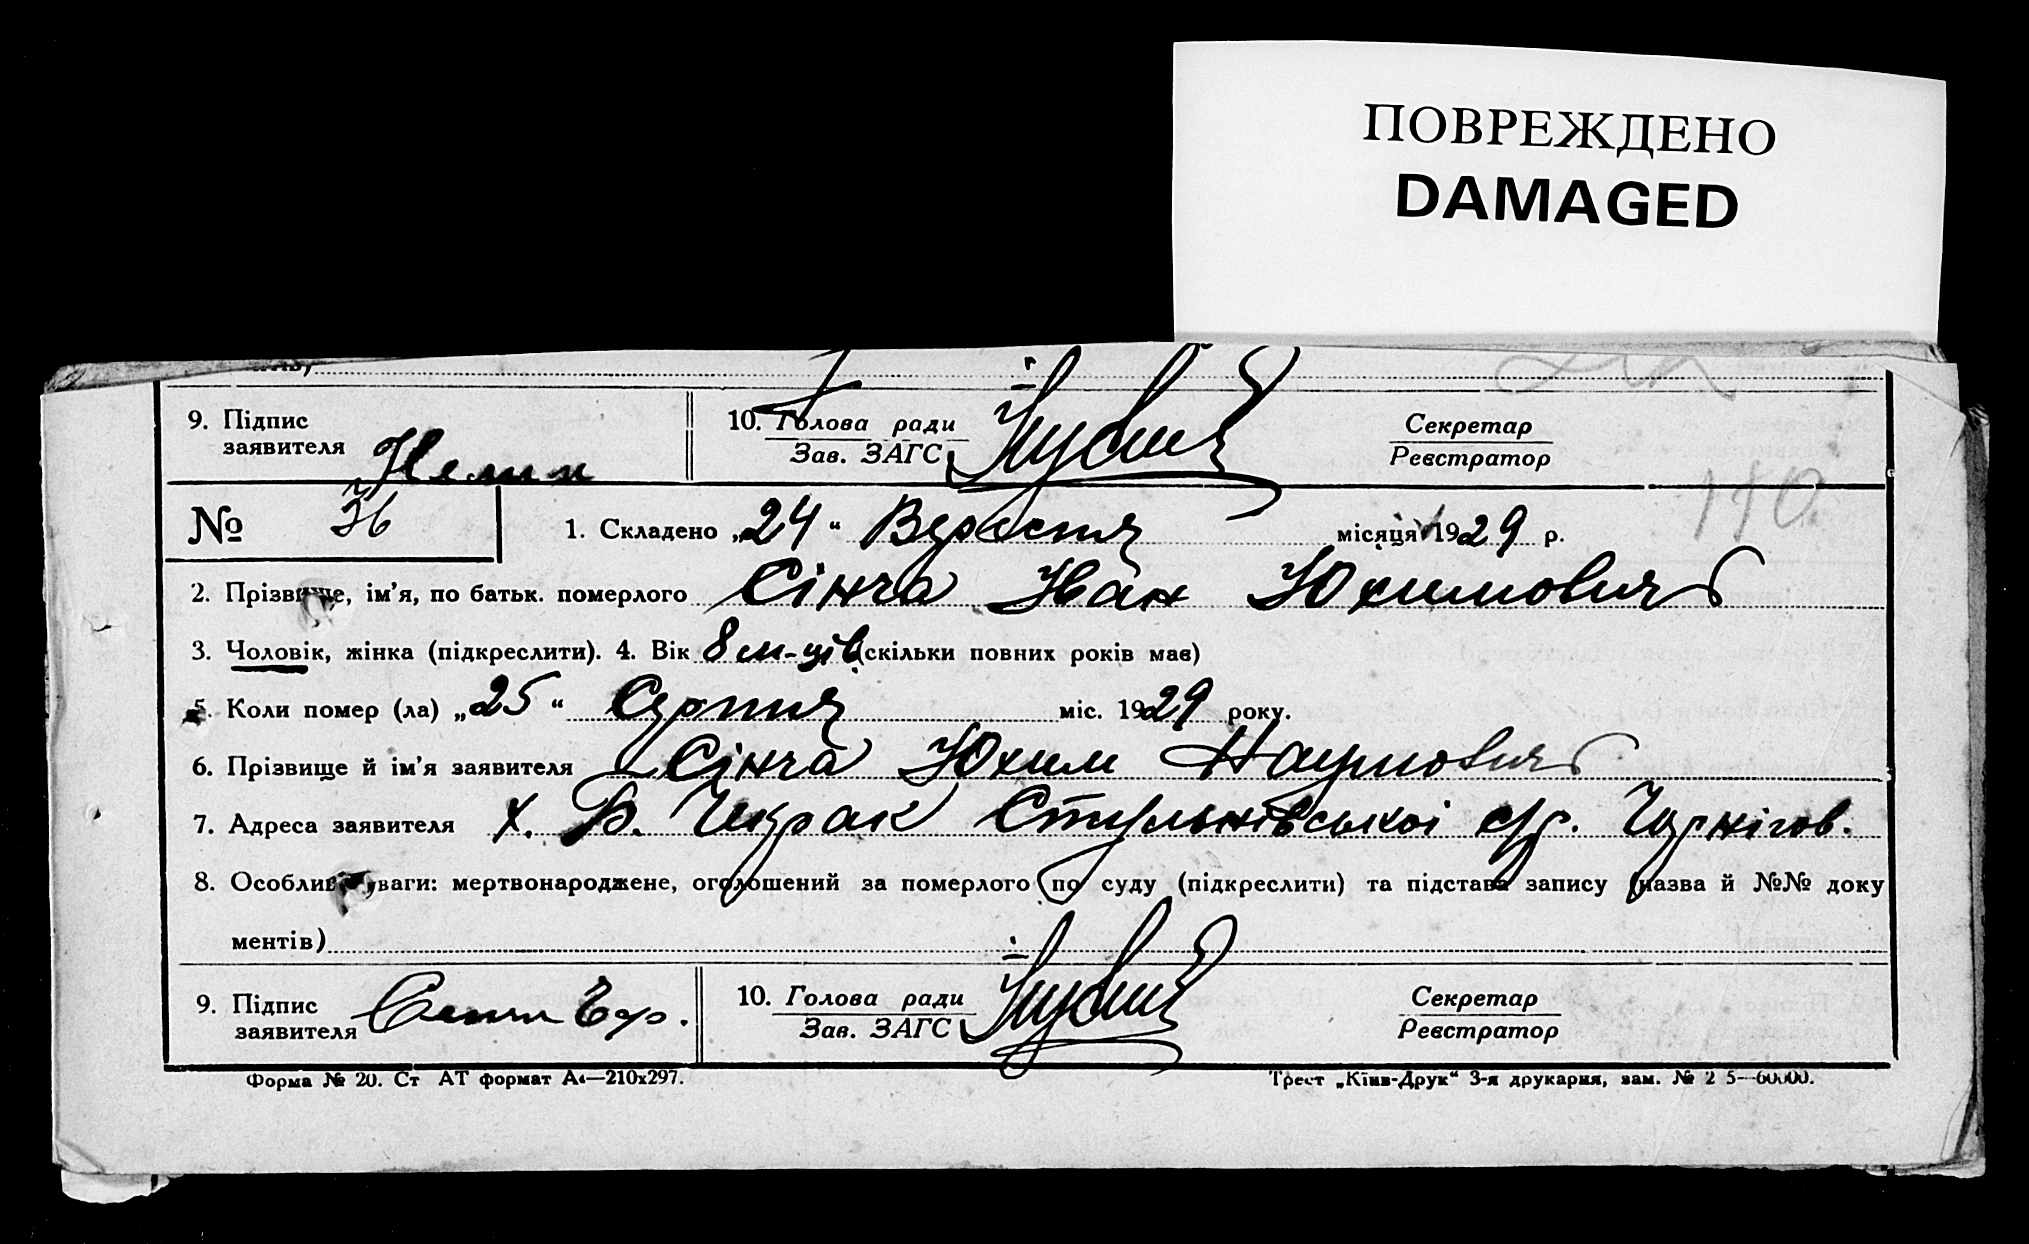 ПОВРЕЖДЕНО
DAMAGED
9. Підпис заявителя
10. Голова ради
Зав. ЗАГС
Секретар
Реєстратор
140
№ 36
1. Складено „24“ Вересня місяця 1929 р.
2. Прізвище, ім'я, по батьк. померлого Сінча Іван Юхимович
3. Чоловік, жінка (підкреслити). 4. Вік 8 м-ців (скільки повних років має)
5. Коли помер (ла) „25“ Серпня міс. 1929 року.
6. Прізвище й ім'я заявителя Сінча Юхим Наумович
7. Адреса заявителя х. Б. Чирак с/р. Чернігов.
8. Особливі уваги: мертвонароджене, оголошений за померлого по суду (підкреслити) та підстава запису (назва й №№ доку
ментів)
9. Підпис заявителя
10. Голова ради
Зав. ЗАГС
Секретар
Реєстратор
Форма № 20. Ст АТ формат А4—210х297.
Трест „Київ-Друк“ 3-я друкарня, зам. №